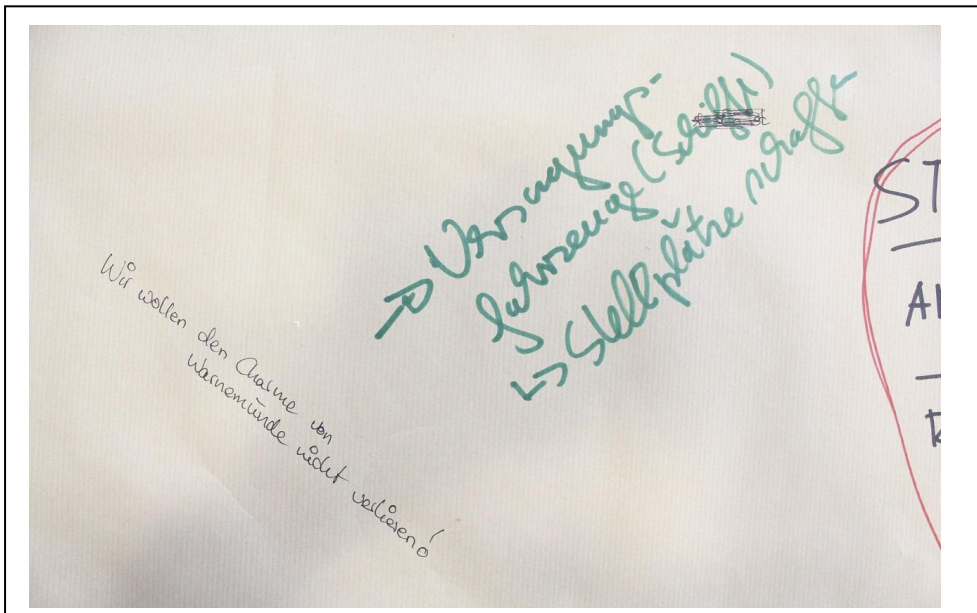 Wir wollen den Charme von
Warnemünde nicht verlieren!
→ Versorgungs-
fahrzeuge (Schiffe)
↳ Stellplätze schaffen
ST